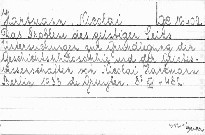 Hartmann, Nicolai
Das Problem des geistigen Seins
Untersuchungen zur Grundlegung der
Geschichtsphilosophie und der Geistes-
wissenschaften von Nicolai Hartmann
Berlin 1933 de Gruyter. 8°